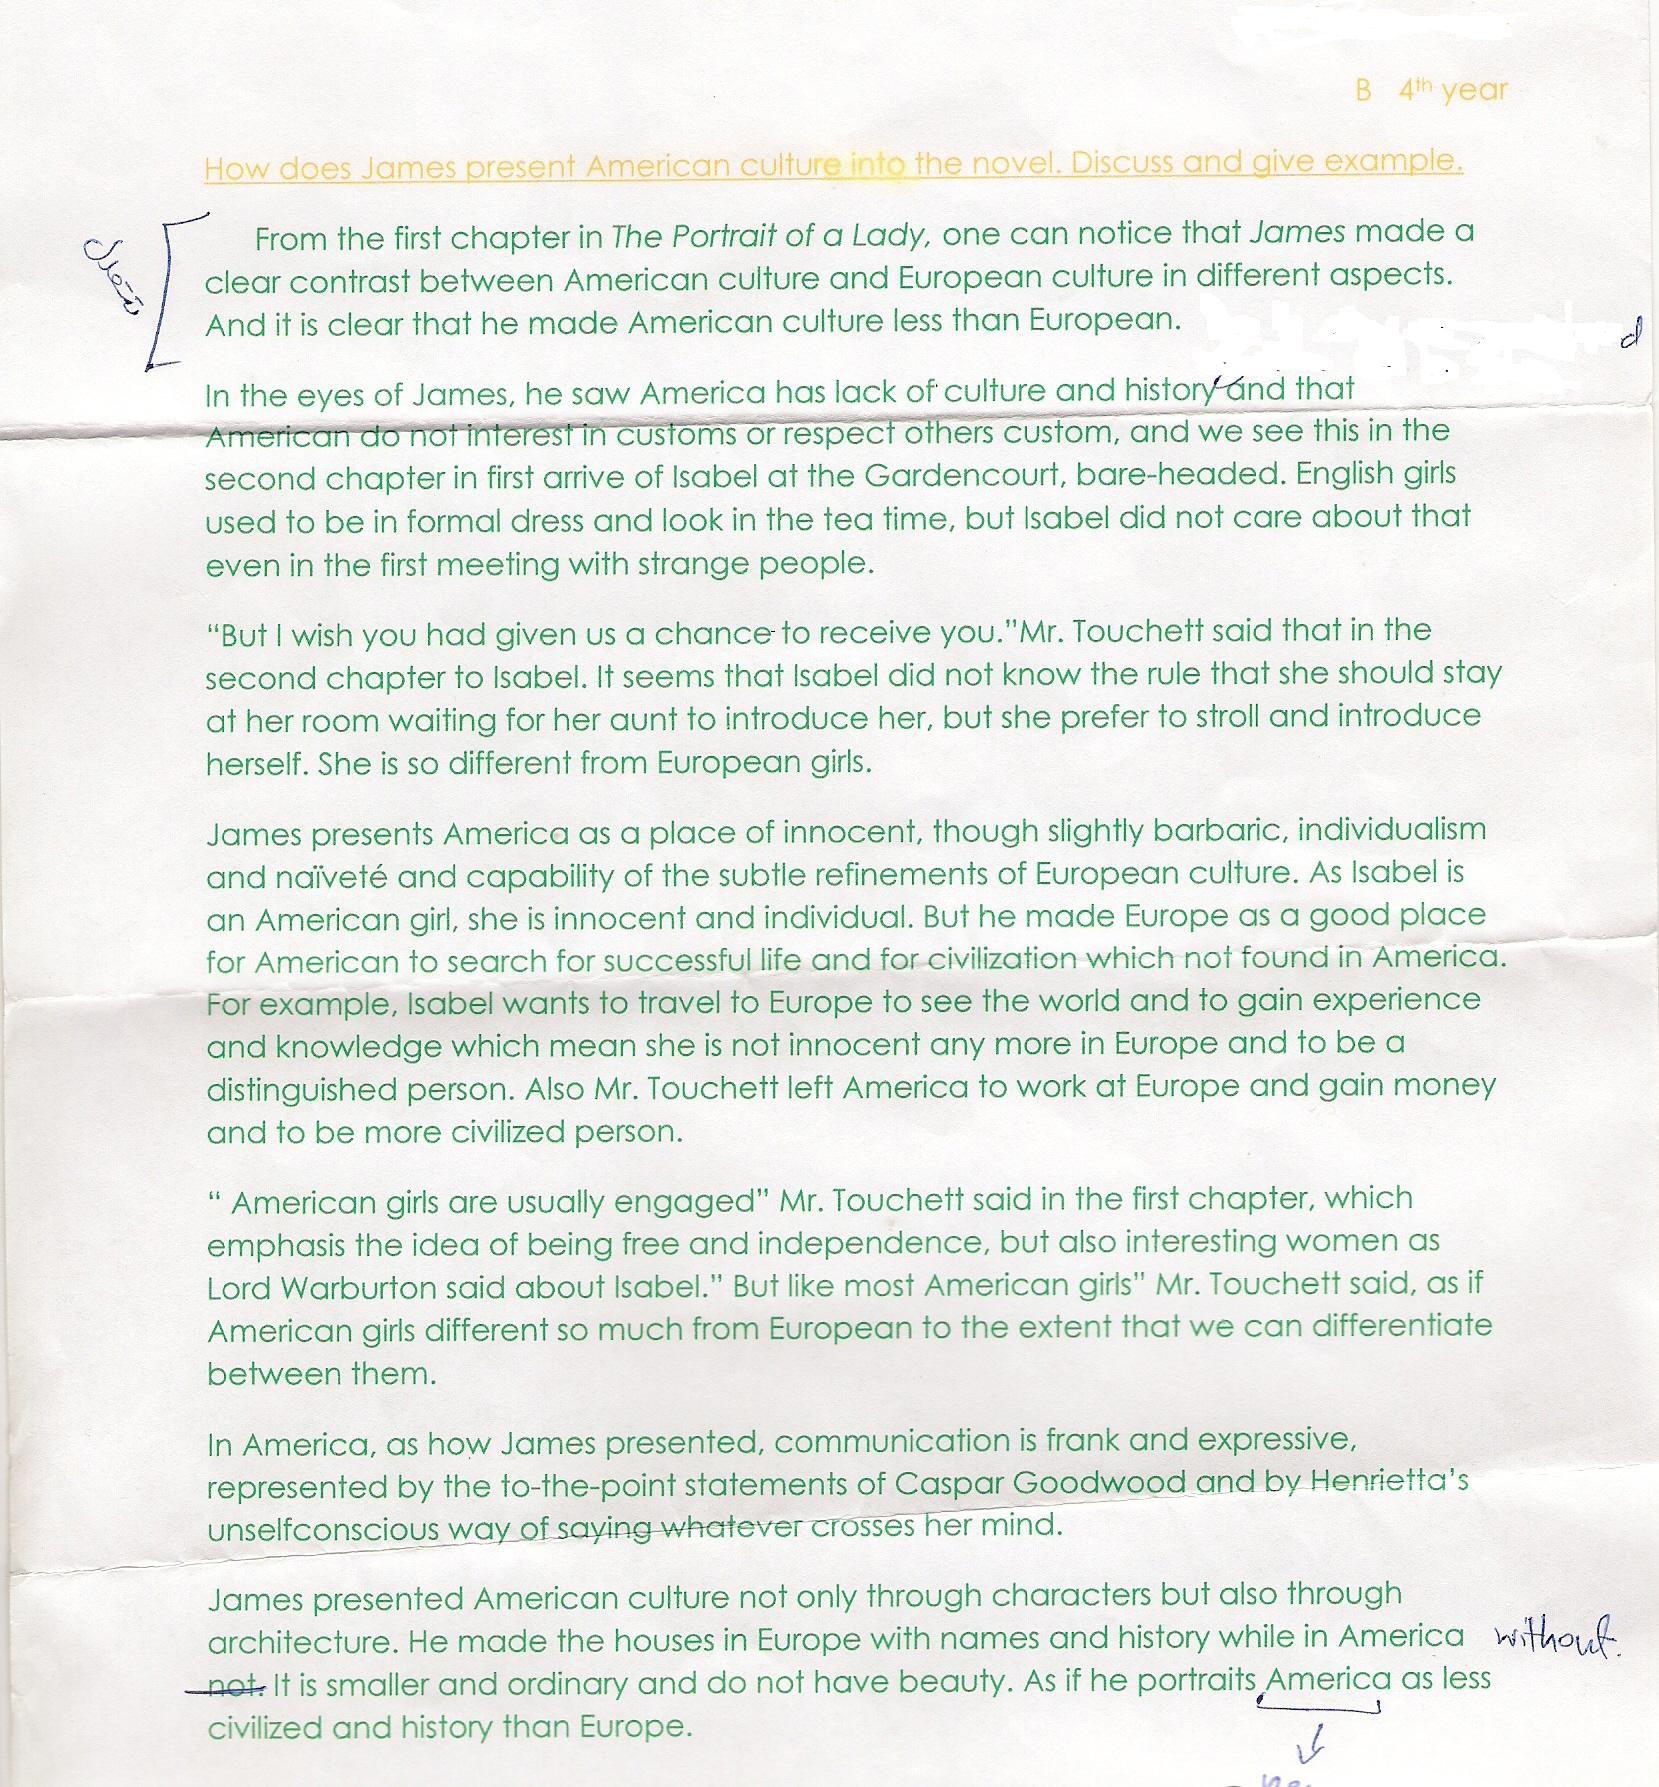 B 4th year
How does James present American culture into the novel. Discuss and give example.
From the first chapter in The Portrait of a Lady, one can notice that James made a
clear contrast between American culture and European culture in different aspects.
And it is clear that he made American culture less than European.
d
In the eyes of James, he saw America has lack of culture and history and that
American do not interest in customs or respect others custom, and we see this in the
second chapter in first arrive of Isabel at the Gardencourt, bare-headed. English girls
used to be in formal dress and look in the tea time, but Isabel did not care about that
even in the first meeting with strange people.
“But I wish you had given us a chance to receive you.”Mr. Touchett said that in the
second chapter to Isabel. It seems that Isabel did not know the rule that she should stay
at her room waiting for her aunt to introduce her, but she prefer to stroll and introduce
herself. She is so different from European girls.
James presents America as a place of innocent, though slightly barbaric, individualism
and naïveté and capability of the subtle refinements of European culture. As Isabel is
an American girl, she is innocent and individual. But he made Europe as a good place
for American to search for successful life and for civilization which not found in America.
For example, Isabel wants to travel to Europe to see the world and to gain experience
and knowledge which mean she is not innocent any more in Europe and to be a
distinguished person. Also Mr. Touchett left America to work at Europe and gain money
and to be more civilized person.
“ American girls are usually engaged” Mr. Touchett said in the first chapter, which
emphasis the idea of being free and independence, but also interesting women as
Lord Warburton said about Isabel.” But like most American girls” Mr. Touchett said, as if
American girls different so much from European to the extent that we can differentiate
between them.
In America, as how James presented, communication is frank and expressive,
represented by the to-the-point statements of Caspar Goodwood and by Henrietta's
unselfconscious way of saying whatever crosses her mind.
James presented American culture not only through characters but also through
architecture. He made the houses in Europe with names and history while in America without.
not. It is smaller and ordinary and do not have beauty. As if he portraits America as less
civilized and history than Europe.